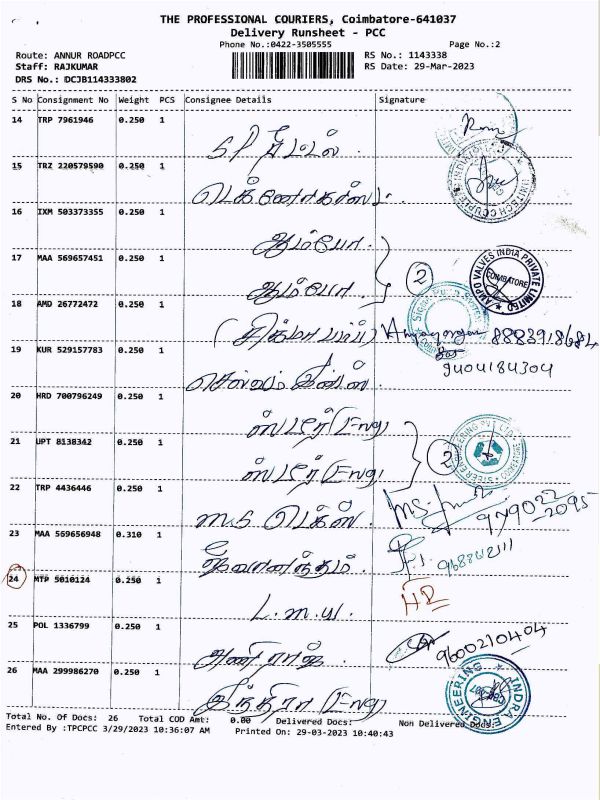 THE PROFESSIONAL COURIERS, Coimbatore-641037
Delivery Runsheet - PCC
Phone No.:0422-3505555
Page No.:2
Route: ANNUR ROADPCC
RS No.: 1143338
Staff: RAJKUMAR
RS Date: 29-Mar-2023
DRS No.: DCJB114333802
S No Consignment No Weight PCS Consignee Details Signature
14 TRP 7961946 0.250 1
15 TRZ 220579590 0.250 1
16 IXM 503373355 0.250 1
ஆம்போ.
17 MAA 569657451 0.250 1
ஆம்போ. 2
AMPO VALVES INDIA PRIVATE LIMITED COIMBATORE
18 AMD 26772472 0.250 1
(சிக்மா பம்ப்) 8883918684
19 KUR 529157783 0.250 1
9404184304
20 HRD 700796249 0.250 1
ஸ்டீர் (Eng)
21 UPT 8138342 0.250 1
ஸ்டீர் (Eng) 2
22 TRP 4436446 0.250 1
M.S டெக்ஸ்.
23 MAA 569656948 0.310 1
ஜீவானந்தம்.
24 MTP 5010124 0.250 1
L.M.W.
25 POL 1336799 0.250 1
9600210404
26 MAA 299986270 0.250 1
இந்திரா (Eng)
INDRA ENGINEERING
Total No. Of Docs: 26 Total COD Amt: 0.00 Delivered Docs: Non Delivered Docs:
Entered By :TPCPCC 3/29/2023 10:36:07 AM Printed On: 29-03-2023 10:40:43